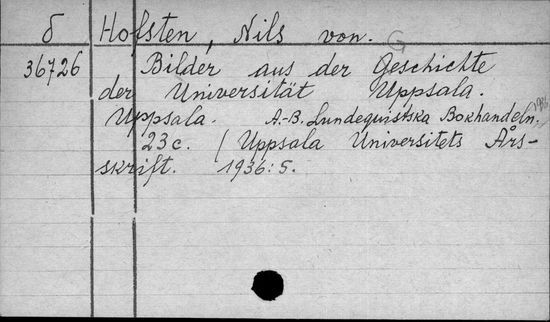 δ Hofsten, Nils von. G
36726 Bilder aus der Geschichte
der Universität Uppsala.
Uppsala. A.-B. Lundequistska Bokhandeln. 1936
23 c. / Uppsala Universitets Års-
skrift. 1936: 5.